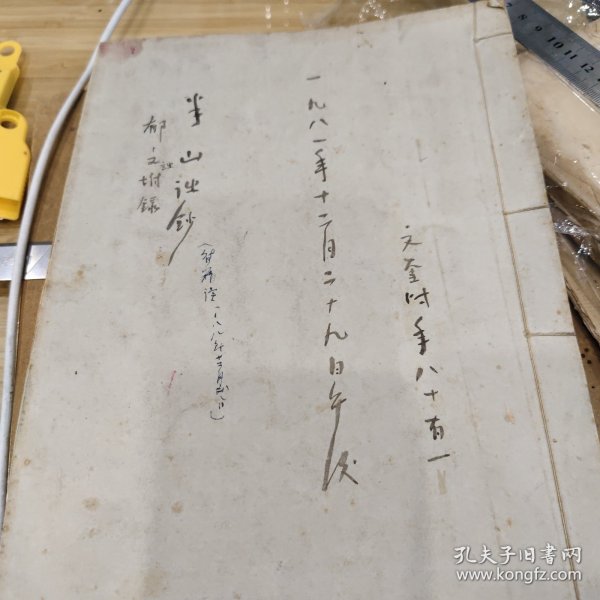 文奎时年八十有一
一九八一年十二月二十九日午后
半山诗钞
郁文诗附录
孔夫子旧书网
www.kongfz.com
7 8 9 10 11 12